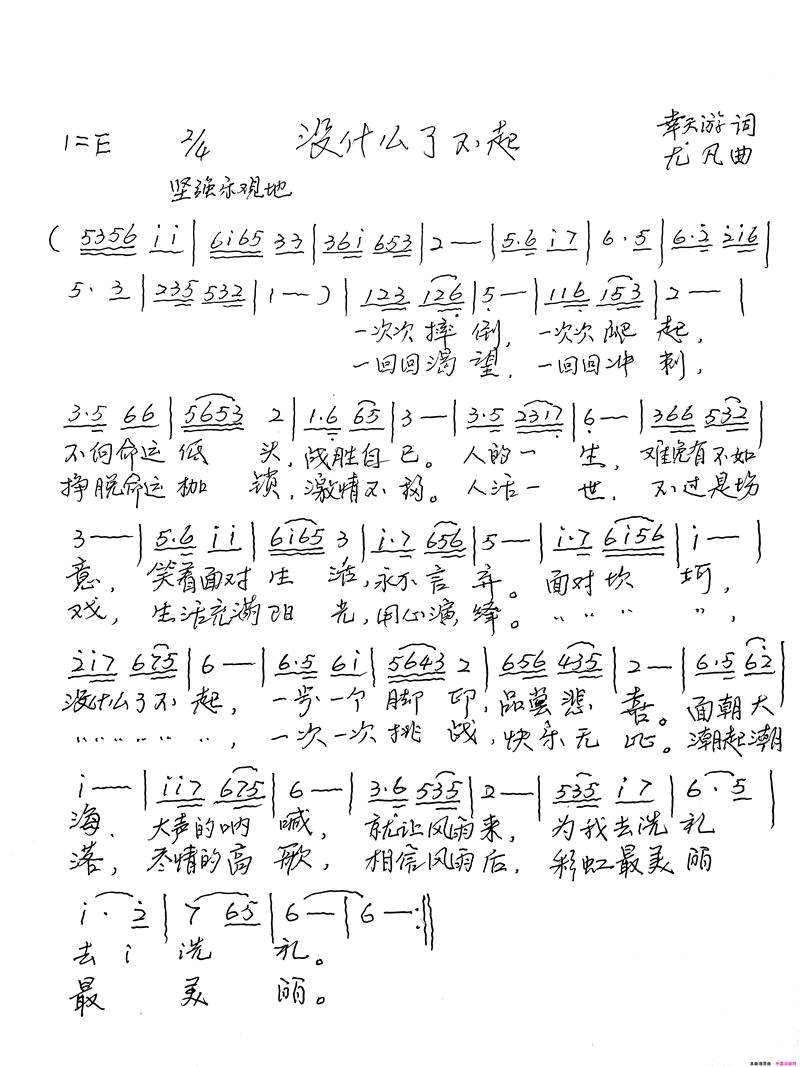 1=E 2/4 没什么了不起 幸天游词
尤凡曲
坚强乐观地
( 5356 i i | 6i65 33 | 36i 653 | 2 — | 5·6 i7 | 6·5 | 6·2 2i6 |
5·3 | 235 532 | 1 — ) | 123 126 | 5 — | 116 153 | 2 — |
一次次摔倒，一次次爬起，
一回回渴望，一回回冲刺，
3·5 66 | 5653 2 | 1·6 65 | 3 — | 3·5 2317 | 6 — | 366 532 |
不向命运低头，战胜自已。人的一生，难免有不如
挣脱命运枷锁，激情不移。人活一世，不过是场
3 — | 5·6 i i | 6i65 3 | i·7 656 | 5 — | i·7 6i56 | i — |
意，笑着面对生活，永不言弃。面对坎坷，
戏，生活充满阳光，用心演绎。〃 〃 〃 〃，
2i7 675 | 6 — | 6·5 6i | 5643 2 | 656 435 | 2 — | 6·5 62 |
没什么了不起，一步一个脚印，品尝悲喜。面朝大
〃 〃 〃 〃 〃 〃，一次一次挑战，快乐无比。潮起潮
i — | i i 7 675 | 6 — | 3·6 535 | 2 — | 535 i7 | 6·5 |
海、大声的呐喊，就让风雨来，为我去洗礼
落，尽情的高歌，相信风雨后，彩虹最美丽
i·2 | 7 65 | 6 — | 6 — :||
去 i 洗礼。
最美丽。